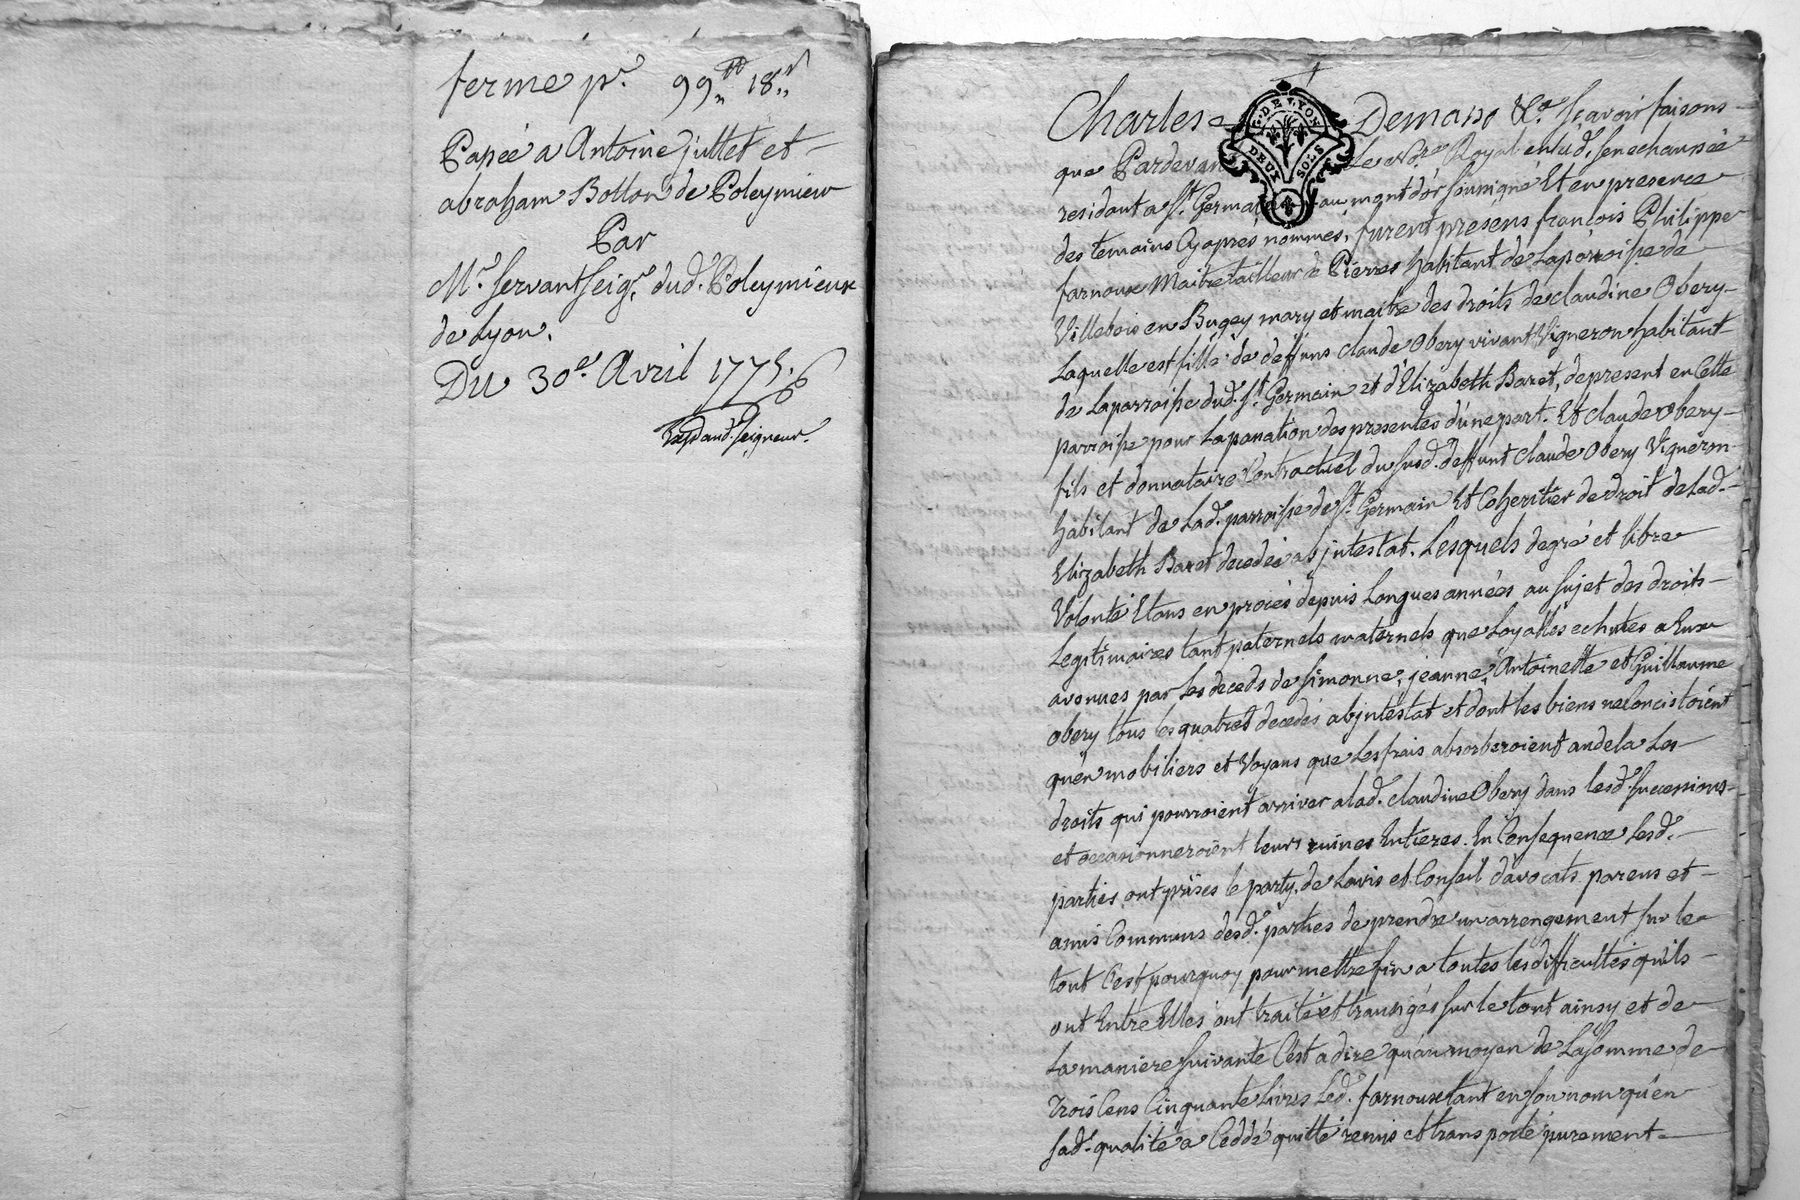 ferme pr. 99tt 18s
Passée a Antoine juttet et
abraham Bollon de Poleymieu
Par
Mr. servant seigr. dud. Poleymieux
de Lyon.
Du 30e. Avril 1775.
Exp. aud. seigneur.
Charles Demaso &a. sçavoir faisons
G. DE LYON
DEUX SOLS
que Pardevant Le Nore. Royal en lad. senechaussée
residant a st. Germain au mont d'or soussigné Et en presence
des temoins Cyaprés nommés, furent presens françois Philippe
farnoux Maitre tailleur de Pierres habitant de La parroisse de
Villebois en Bugey mary et maitre des droits de claudine Obery
Laquelle est fille de deffuns claude Obery vivant Vigneron habitant
de Laparroisse dud. st. Germain et d'Elizabeth Baret, depresent en Cette
parroisse pour La passation des presentes d'une part. Et claude obery
fils et donnataire Contractuel du susd. deffunt claude Obery Vigneron
habitant de Lad. parroisse de st. Germain Et Coheritier de droit de Lad.
Elizabeth Baret decedée abjntestat. Lesquels degré et libre
Volonté Etans en procés depuis Longues années au sujet des droits
Legitimaires tant paternels maternels que Loyalles echutes a Eux
avenues par Les deceds de simonne, jeanne, Antoinette et Guillaume
obery tous les quatres decedés abjntestat et dont les biens ne Concistoient
qu'en mobiliers et Voyans que Les frais absorberoient audela Les
droits qui pourroient arriver a lad. claudine Obery dans lesd. successions
et occasionneroient leurs ruines Entieres. En Consequence Lesd.
parties ont prises le party, de Lavis et Conseil d'avocats parens et
amis Communs desd. parties de prendre un arrengement sur le
tout C'est pourquoy pour mettre fin a toutes les difficultés qu'ils
ont Entre Elles ont traité et transigés sur le tout ainsy et de
La maniere suivante C'est a dire qu'au moyen de La somme de
Trois Cens Cinquante Livres Led. farnoux tant en son nom qu'en
sad. qualité a Ceddé quitté remis et transporté purement